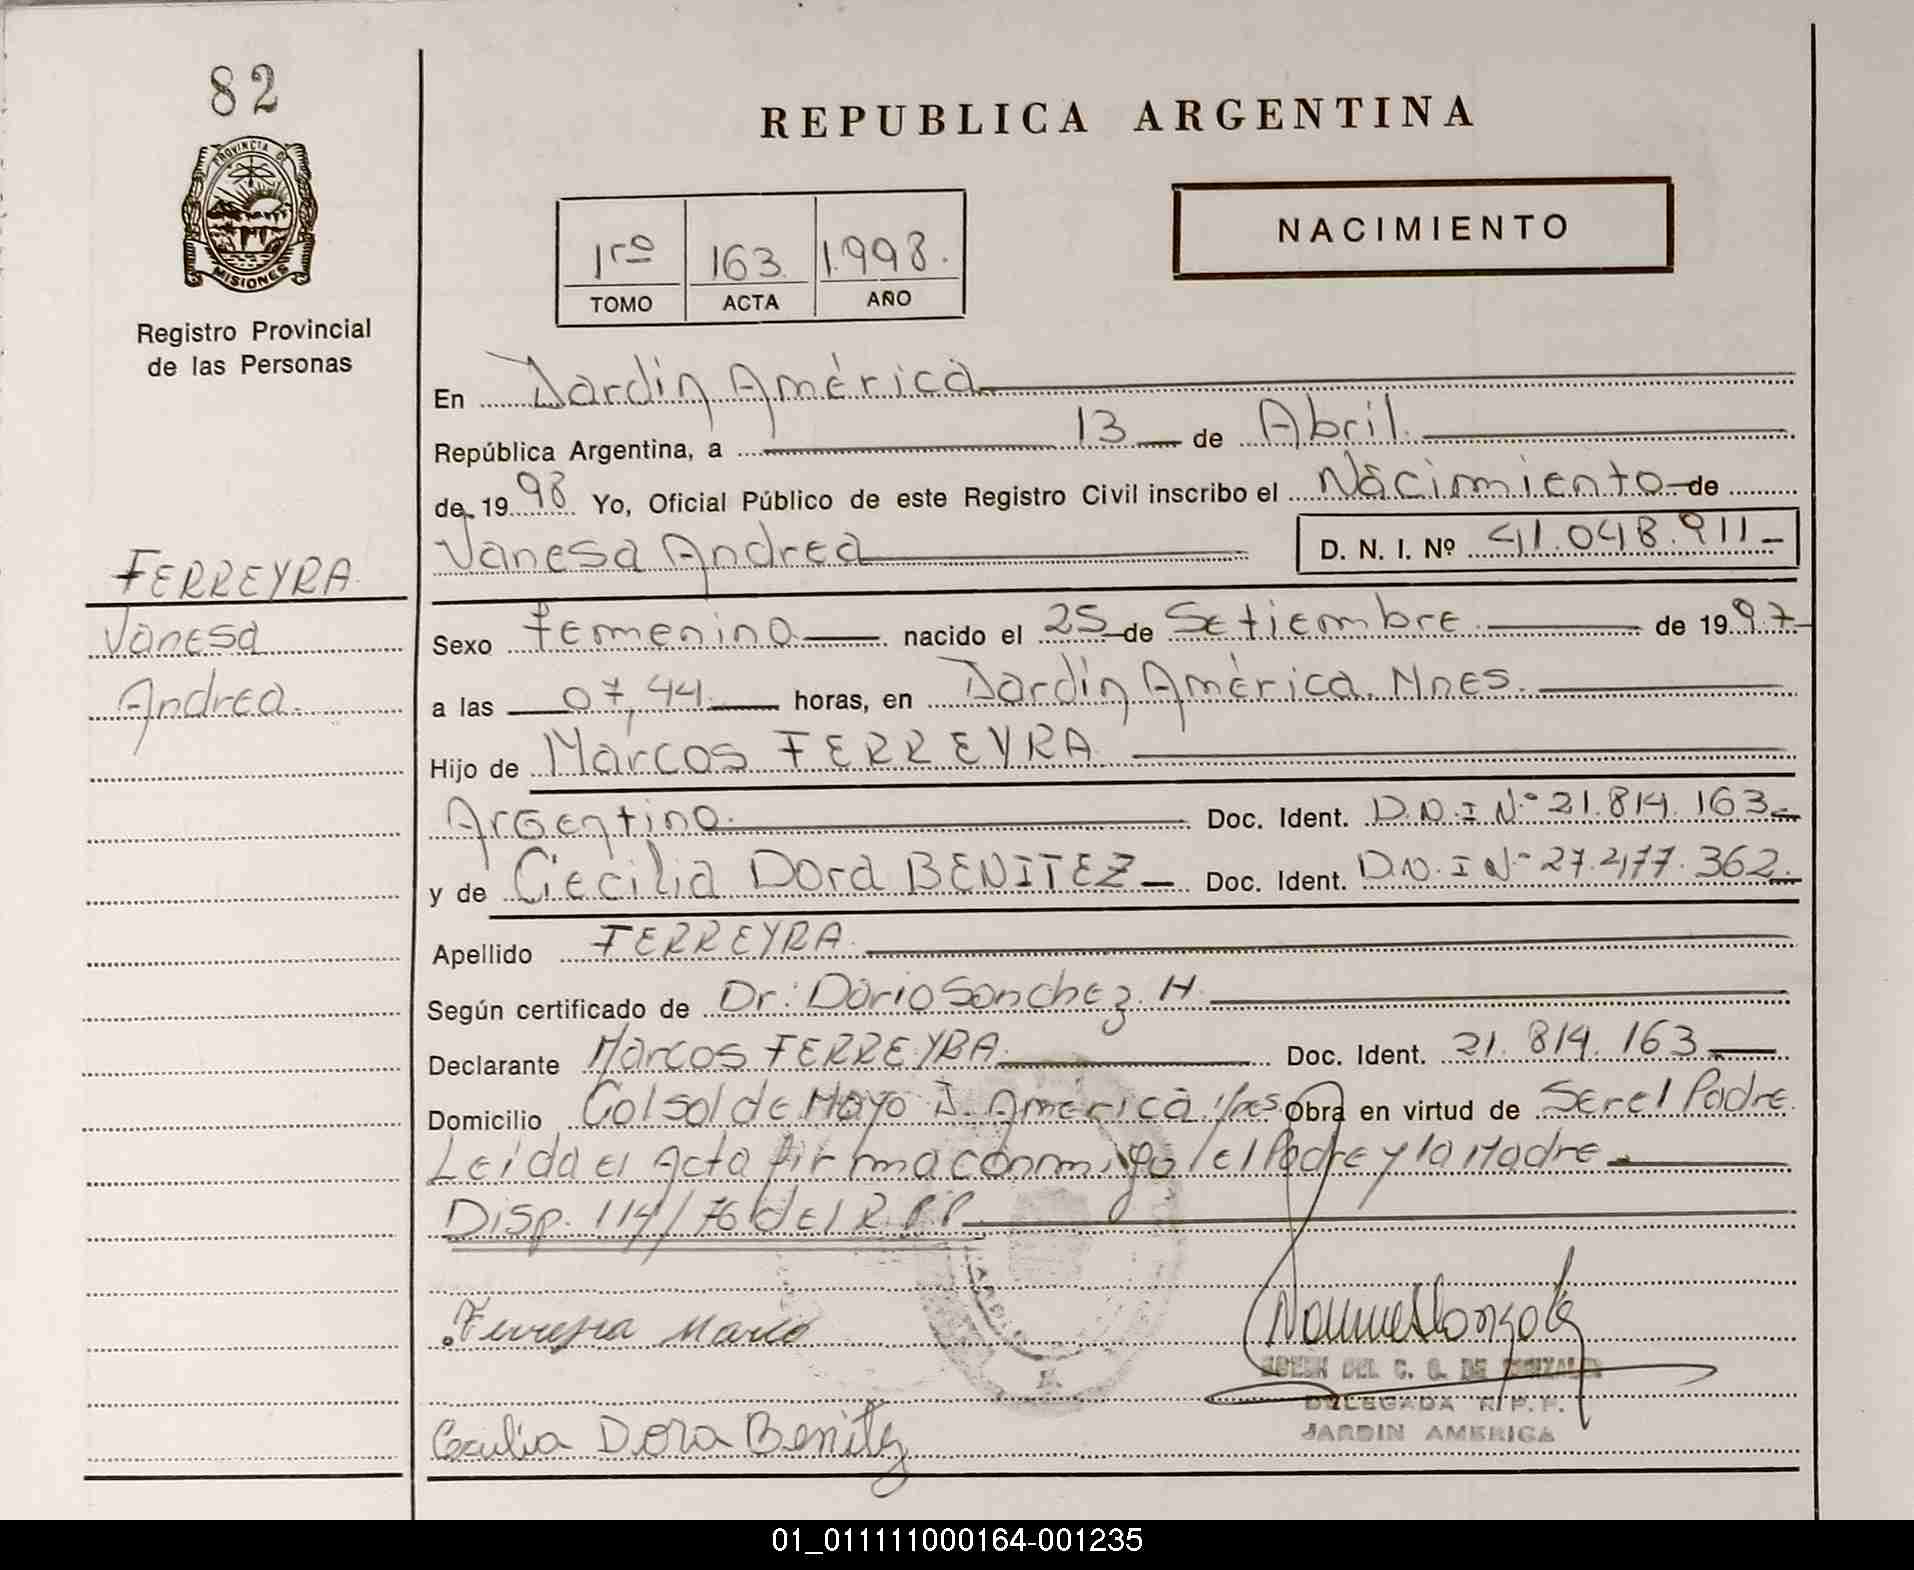 82
PROVINCIA DE
MISIONES
Registro Provincial
de las Personas
REPUBLICA ARGENTINA
NACIMIENTO
1ro 163 1.998.
TOMO ACTA AÑO
En Jardín América
República Argentina, a 13 de Abril
de 1998 Yo, Oficial Público de este Registro Civil inscribo el Nacimiento de
Vanesa Andrea D. N. I. Nº 41.048.911
FERREYRA
Vanesa
Andrea
Sexo Femenino nacido el 25 de Setiembre de 1997
a las 07,44 horas, en Jardín América. Mnes.
Hijo de Marcos FERREYRA
Argentino. Doc. Ident. D.N.I Nº 21.814.163
y de Cecilia Dora BENITEZ Doc. Ident. D.N.I Nº 27.477.362
Apellido FERREYRA
Según certificado de Dr: Dario Sanchez. H.
Declarante Marcos FERREYRA Doc. Ident. 21.814.163
Domicilio Col sol de Mayo J. América Obra en virtud de Ser el Padre
Leída el Acta firma conmigo el Padre y la Madre
Disp. 114/76 del R.P.P.
Ferreyra Marco
DELEGADA R.P.P.
JARDIN AMERICA
Cecilia Dora Benitez
01_011111000164-001235